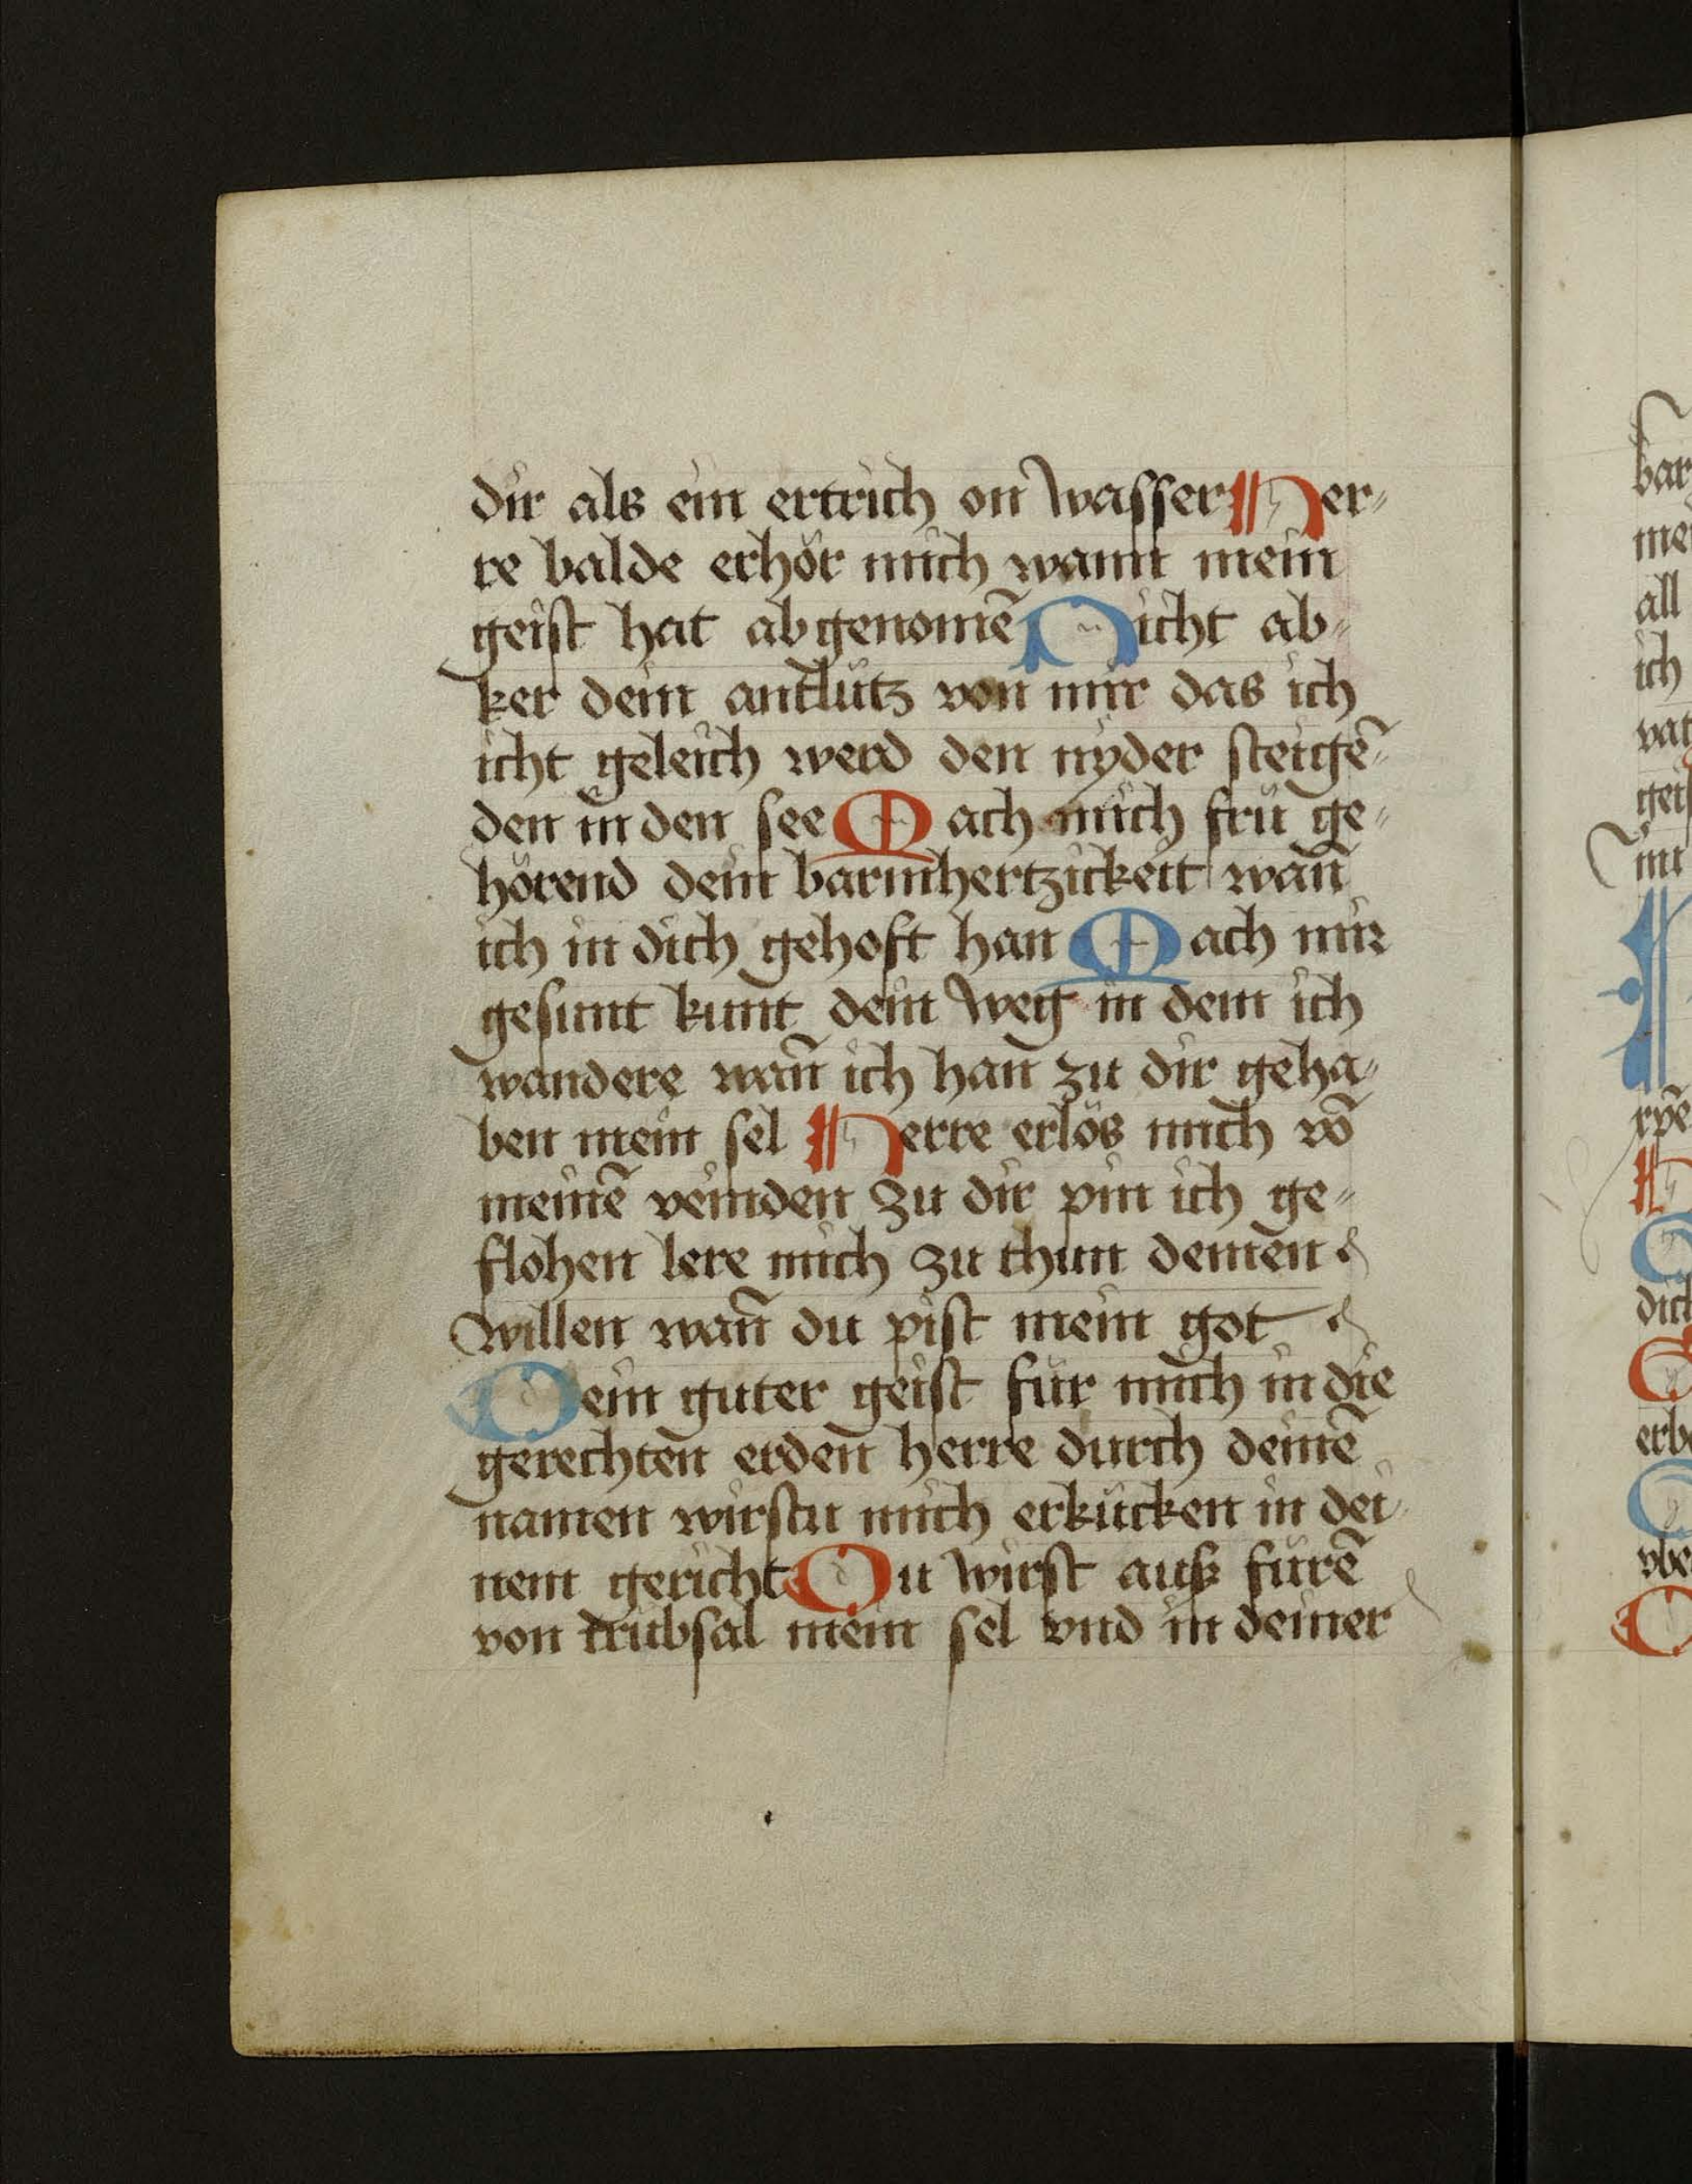 dir als ein ertrich on wasser Her⸗
re balde erhör mich wann mein
geist hat abgenomē Nicht ab⸗
ker dein antlütz von mir das ich
icht geleich werd den nyder steigē⸗
den in den see Mach mich frü ge⸗
hörend dein barmhertzickeit wañ
ich in dich gehoft han Mach mir
gesunt kunt dein weg in dem ich
wandere wañ ich han zu dir geha⸗
ben mein sel Herre erlös mich vō
meinē veinden zu dir pin ich ge⸗
flohen lere mich zu thun deinen
willen wañ du pist mein got
Dein guter geist für mich in die
gerechten erden herre durch deinē
namen wirstu mich erkücken in dei
nem gericht Du wirst auß fürē
von trübsal mein sel vnd in deiner
bar
all
ich
vat
dich
erb
vbe